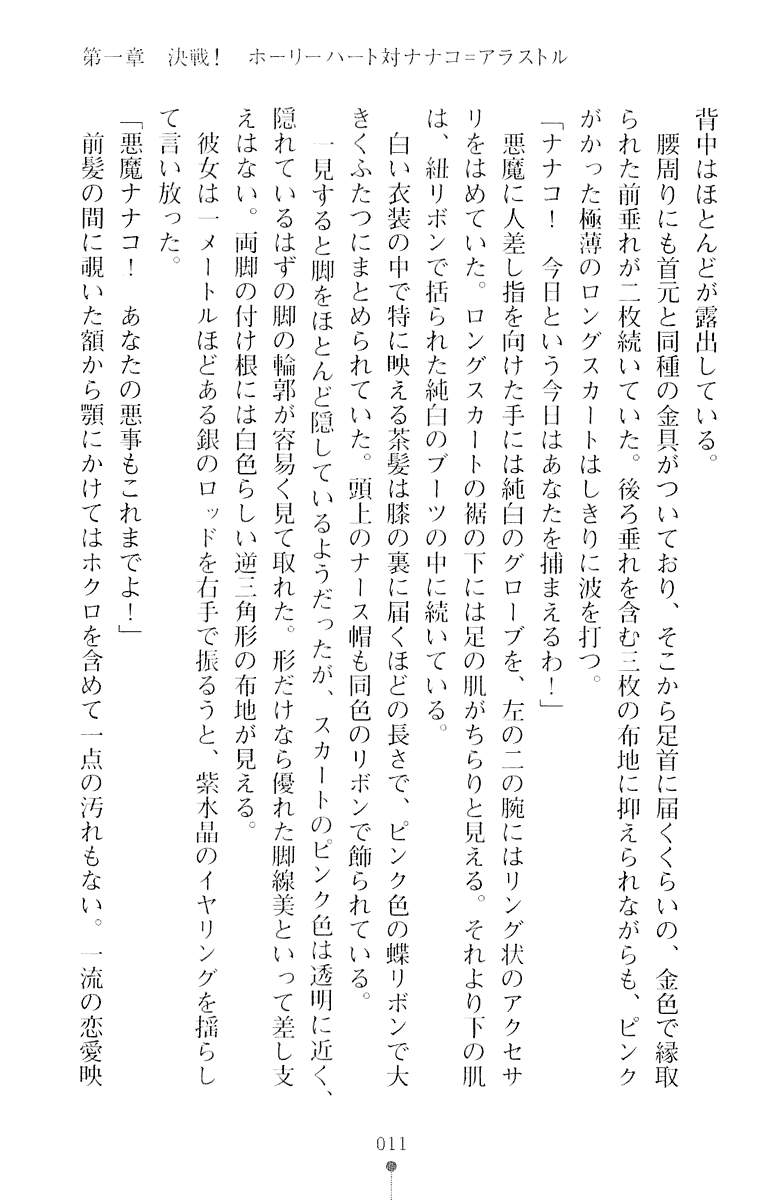 第一章　決戦！　ホーリーハート対ナナコ＝アラストル
背中はほとんどが露出している。
　腰周りにも首元と同種の金具がついており、そこから足首に届くくらいの、金色で縁取
られた前垂れが二枚続いていた。後ろ垂れを含む三枚の布地に抑えられながらも、ピンク
がかった極薄のロングスカートはしきりに波を打つ。
「ナナコ！　今日という今日はあなたを捕まえるわ！」
　悪魔に人差し指を向けた手には純白のグローブを、左の二の腕にはリング状のアクセサ
リをはめていた。ロングスカートの裾の下には足の肌がちらりと見える。それより下の肌
は、紐リボンで括られた純白のブーツの中に続いている。
　白い衣装の中で特に映える茶髪は膝の裏に届くほどの長さで、ピンク色の蝶リボンで大
きくふたつにまとめられていた。頭上のナース帽も同色のリボンで飾られている。
　一見すると脚をほとんど隠しているようだったが、スカートのピンク色は透明に近く、
隠れているはずの脚の輪郭が容易く見て取れた。形だけなら優れた脚線美といって差し支
えはない。両脚の付け根には白色らしい逆三角形の布地が見える。
　彼女は一メートルほどある銀のロッドを右手で振るうと、紫水晶のイヤリングを揺らし
て言い放った。
「悪魔ナナコ！　あなたの悪事もこれまでよ！」
　前髪の間に覗いた額から顎にかけてはホクロを含めて一点の汚れもない。一流の恋愛映
011